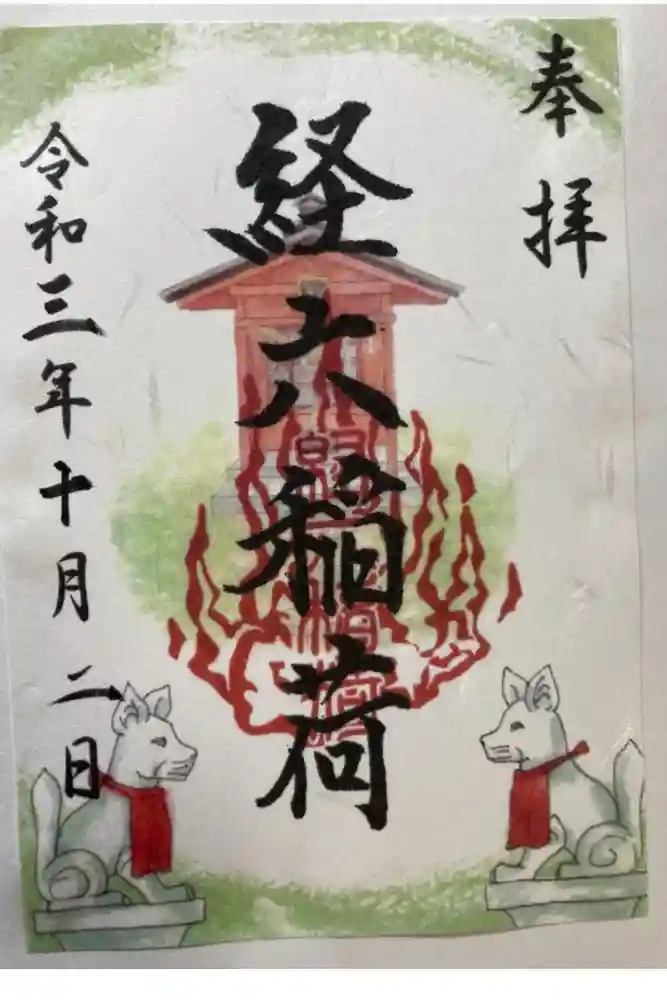 奉拝
経六稲荷
令和三年十月二日